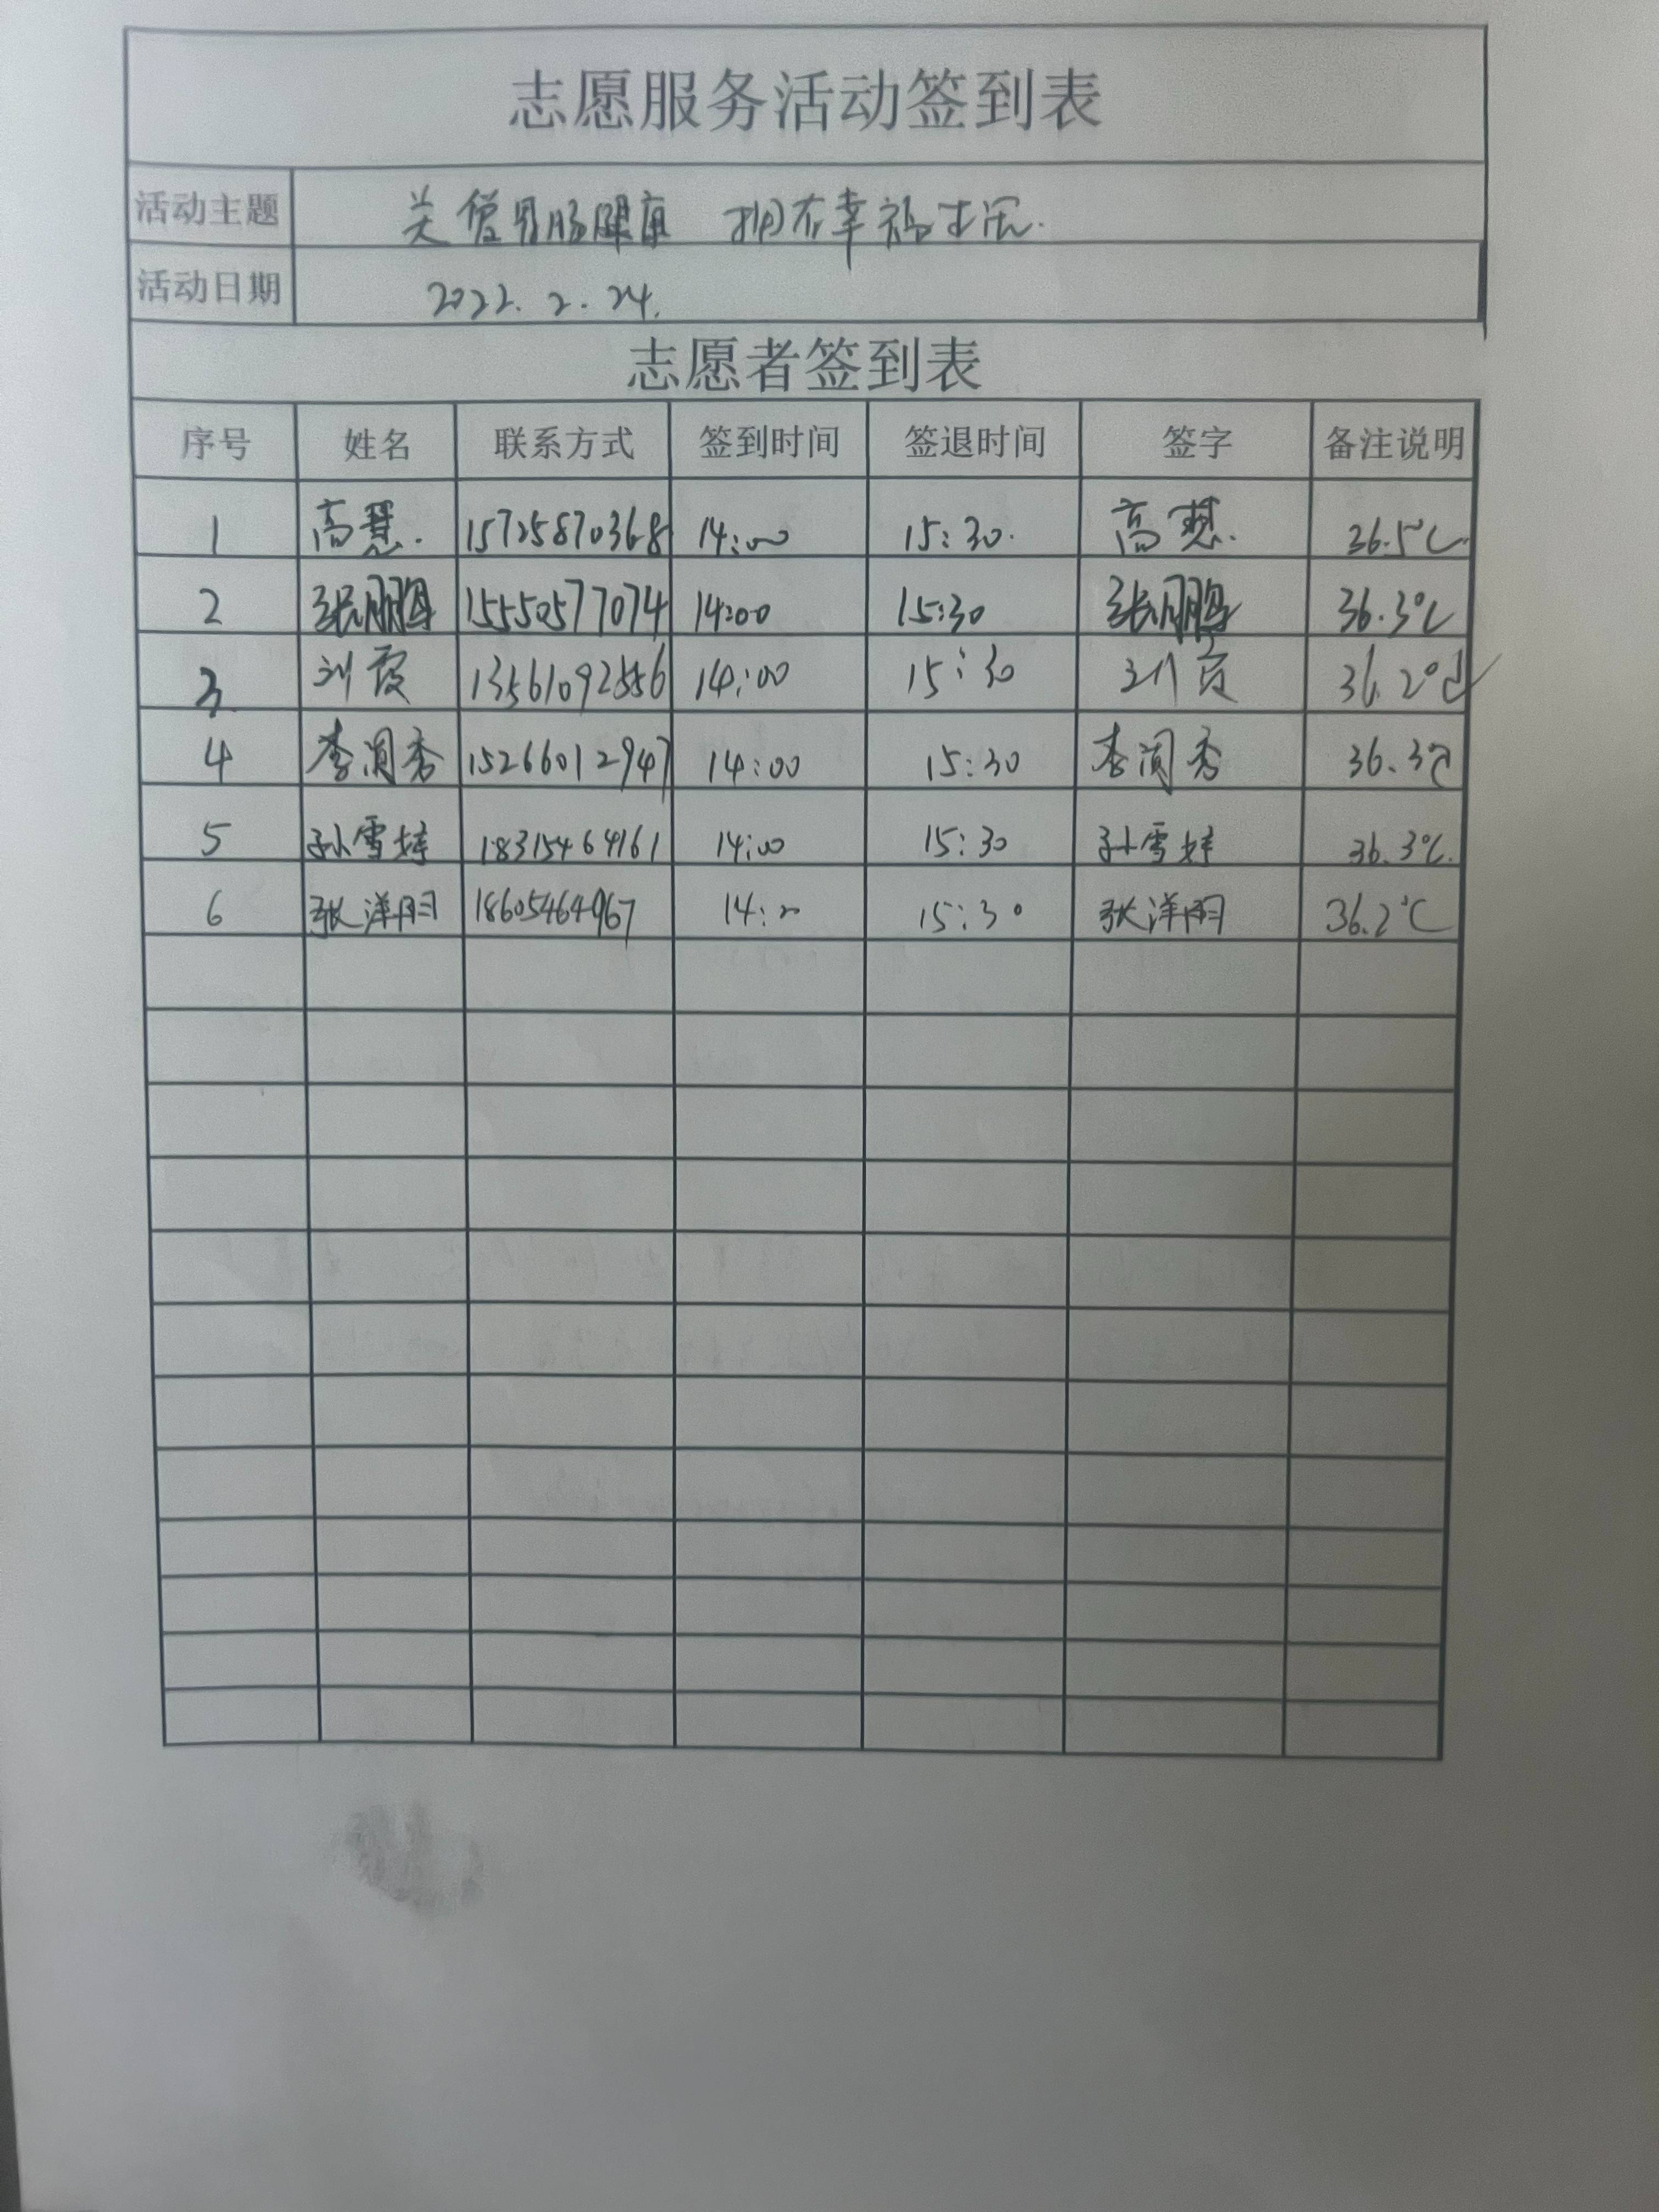 志愿服务活动签到表
活动主题 关爱胃肠健康 拥有幸福生活.
活动日期 2022.2.24.
志愿者签到表
序号 姓名 联系方式 签到时间 签退时间 签字 备注说明
1 高慧. 15725870368 14:00 15:30. 高慧. 36.5℃.
2 张鹏 15550577074 14:00 15:30 张鹏 36.3℃
3 刘霞 13561092556 14:00 15:30 刘霞 36.2℃
4 李润秀 15266012947 14:00 15:30 李润秀 36.3℃
5 孙雪婷 18315464161 14:00 15:30 孙雪婷 36.3℃.
6 张洋 18605464967 14:00 15:30 张洋 36.2℃